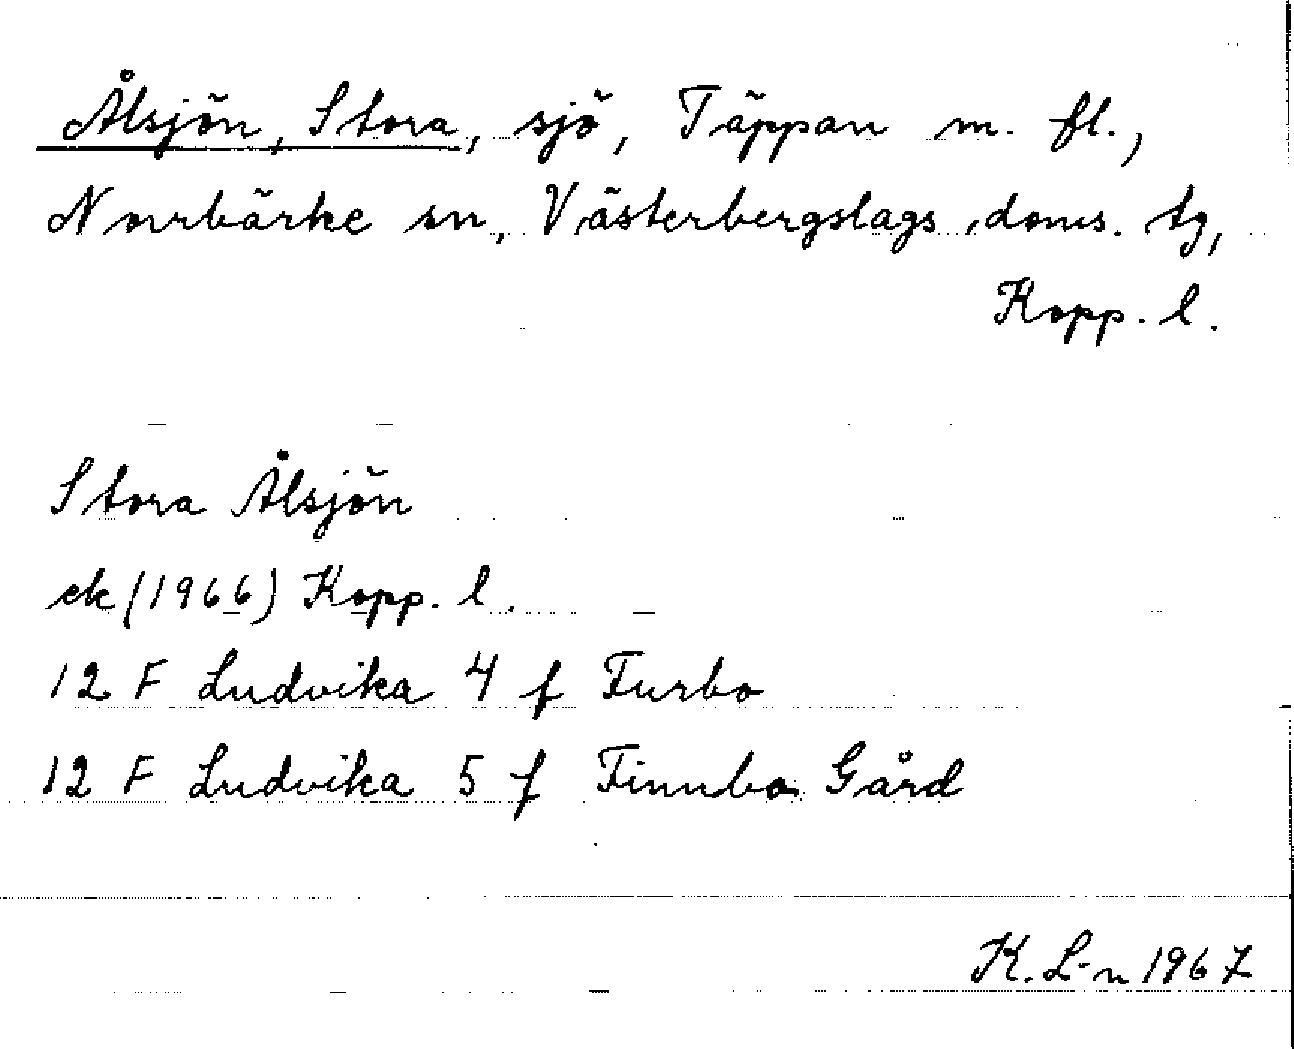 Ålsjön, Stora, sjö, Täppan m. fl.,
Norrbärke sn, Västerbergslags doms. tg,
Kopp. l.
Stora Ålsjön
ek (1966) Kopp. l.
12 F Ludvika 4 f Furbo
12 F Ludvika 5 f Finnbo Gård
K. L-n 1967